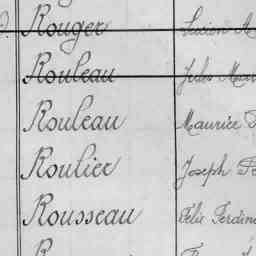 Rouger Lucien
Rouleau Jules
Rouleau Maurice
Roulier Joseph
Rousseau Félix